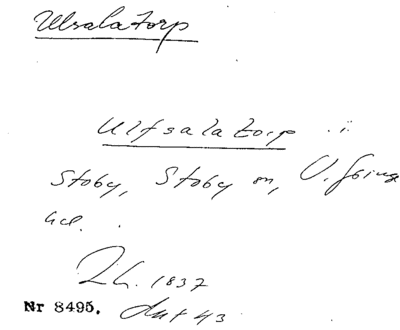 Ulsalatorp
Ulfsalatorp i
Stoby, Stoby sn, V. Göinge
hd.
1837
Nr 8495.